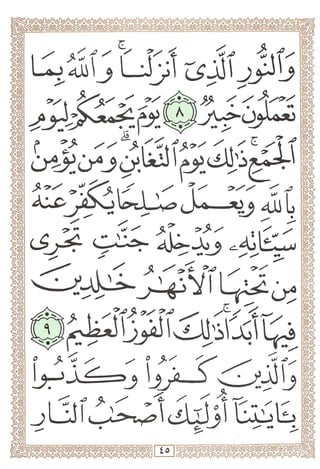 وَٱلنُّورِ ٱلَّذِىٓ أَنزَلْنَا ۚ وَٱللَّهُ بِمَا
تَعْمَلُونَ خَبِيرٌ ٨ يَوْمَ يَجْمَعُكُمْ لِيَوْمِ
ٱلْجَمْعِ ۖ ذَٰلِكَ يَوْمُ ٱلتَّغَابُنِ ۗ وَمَن يُؤْمِنۢ
بِٱللَّهِ وَيَعْمَلْ صَـٰلِحًا يُكَفِّرْ عَنْهُ
سَيِّـَٔاتِهِۦ وَيُدْخِلْهُ جَنَّـٰتٍ تَجْرِى
مِن تَحْتِهَا ٱلْأَنْهَـٰرُ خَـٰلِدِينَ
فِيهَآ أَبَدًا ۚ ذَٰلِكَ ٱلْفَوْزُ ٱلْعَظِيمُ ٩
وَٱلَّذِينَ كَفَرُوا۟ وَكَذَّبُوا۟
بِـَٔايَـٰتِنَآ أُو۟لَـٰٓئِكَ أَصْحَـٰبُ ٱلنَّارِ
٤٥